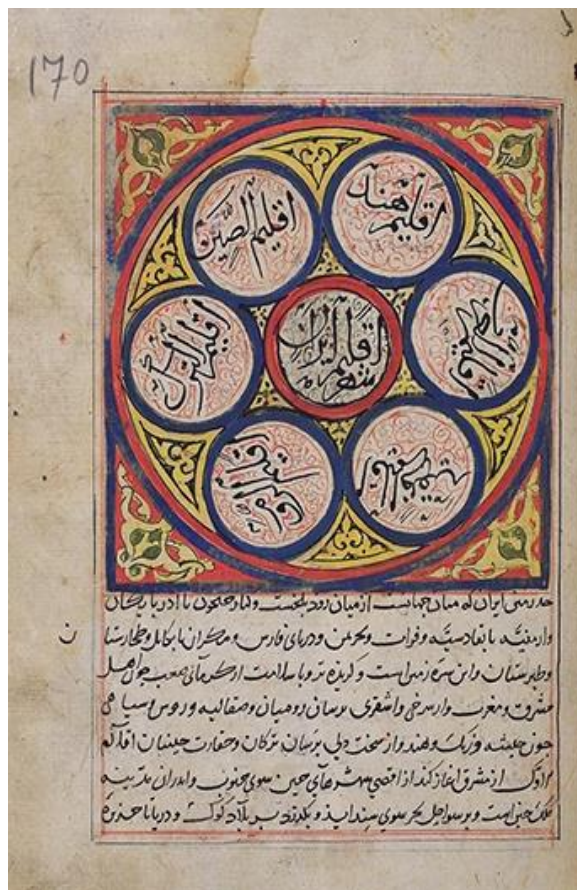 170
اقلیم هند
اقلیم الصین
اقلیم الترک
اقلیم الروم
اقلیم ایران شهر
حد زمین ایران که میان جهانست از میان رود بلخست و کنار جیحون تا آذربایگان
و ارمنیّه تا بقادسیّه و فرات و بحر یمن و دریای فارس و مکران تا بکابل و طخارستان
و طبرستان و این سرّه زمین است و گزیده‌تر و با سلامت از گرمای صعب چون اهل
مشرق و مغرب و از سرخی و اشقری برسان رومیان و صقالبه و روس و سیاهی
چون حبشه و زنگ و هند و از سخت دلی برسان ترکان و حقارت چینیان
از مشرق آغاز کند از اقصی شهرهای چین سوی جنوب و اندران مدینه
ملک چین است و بر سواحل بحر سوی سند آید و بگذرد بر بلاد کوک و دریا تا جزیره
ن